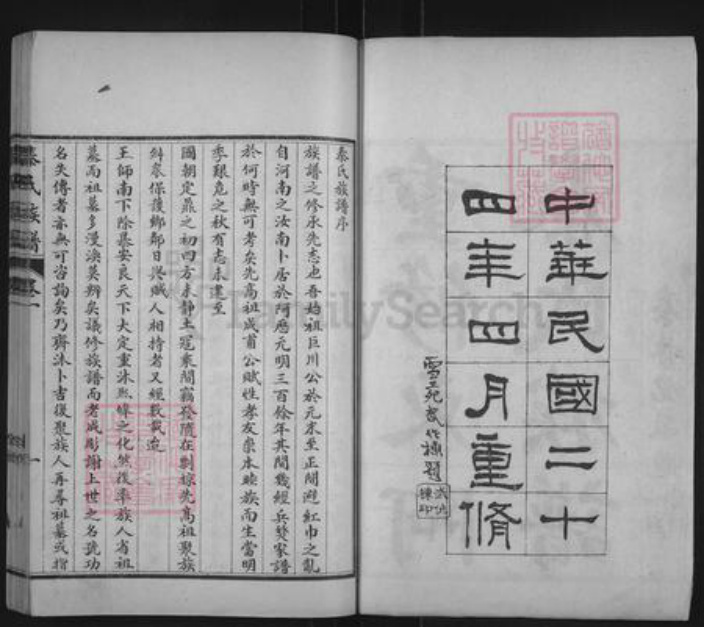 中華民國二十
四年四月重脩
秦氏族譜序
族譜之修承先志也吾始祖巨川公於元末至正間避紅巾之亂
自河南之汝南卜居於阿歷元明三百餘年其間幾經兵燹家譜
於何時無可考矣先高祖成甫公賦性孝友崇本睦族而生當明
季艱危之秋有志未逮至
國朝定鼎之初四方未靜土冦乘間竊發隨在剽掠先高祖聚族
糾衆保護鄉鄰日與賊人相持者又經數載迨
王師南下除暴安良天下大定重沐熙皞之化然後率族人省祖
墓而祖墓多漫湮莫辨矣議修族譜而老成彫謝上世之名號功
名失傳者亦無可咨詢矣乃齊沐卜吉復聚族人再尋祖墓或指
氏族譜
FamilySearch